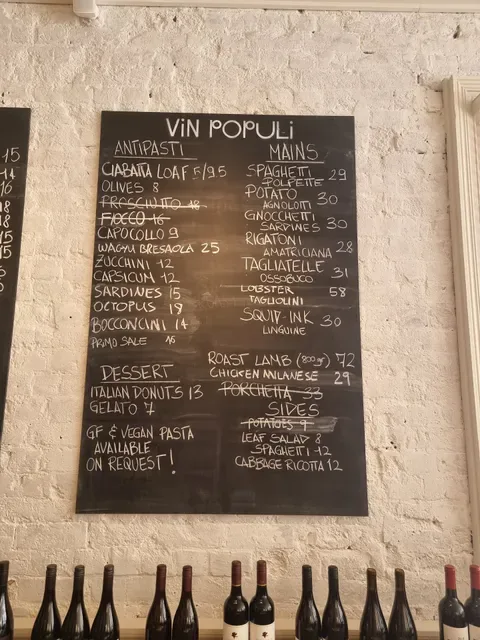 VIN POPULI
ANTIPASTI
CIABATTA LOAF 5/9.5
OLIVES 8
PROSCIUTTO 18
FIOCCO 16
CAPOCOLLO 9
WAGYU BRESAOLA 25
ZUCCHINI 12
CAPSICUM 12
SARDINES 15
OCTOPUS 19
BOCCONCINI 14
PRIMO SALE 16
DESSERT
ITALIAN DONUTS 13
GELATO 7
GF & VEGAN PASTA
AVAILABLE
ON REQUEST!
MAINS
SPAGHETTI 29
POLPETTE
POTATO 30
AGNOLOTTI
GNOCCHETTI 30
SARDINES
RIGATONI 28
AMATRICIANA
TAGLIATELLE 31
OSSOBUCO
LOBSTER 58
TAGLIOLINI
SQUID-INK 30
LINGUINE
ROAST LAMB (800gr) 72
CHICKEN MILANESE 29
PORCHETTA 33
SIDES
POTATOES 9
LEAF SALAD 8
SPAGHETTI 12
CABBAGE RICOTTA 12
15
14
16
18
18
15
15